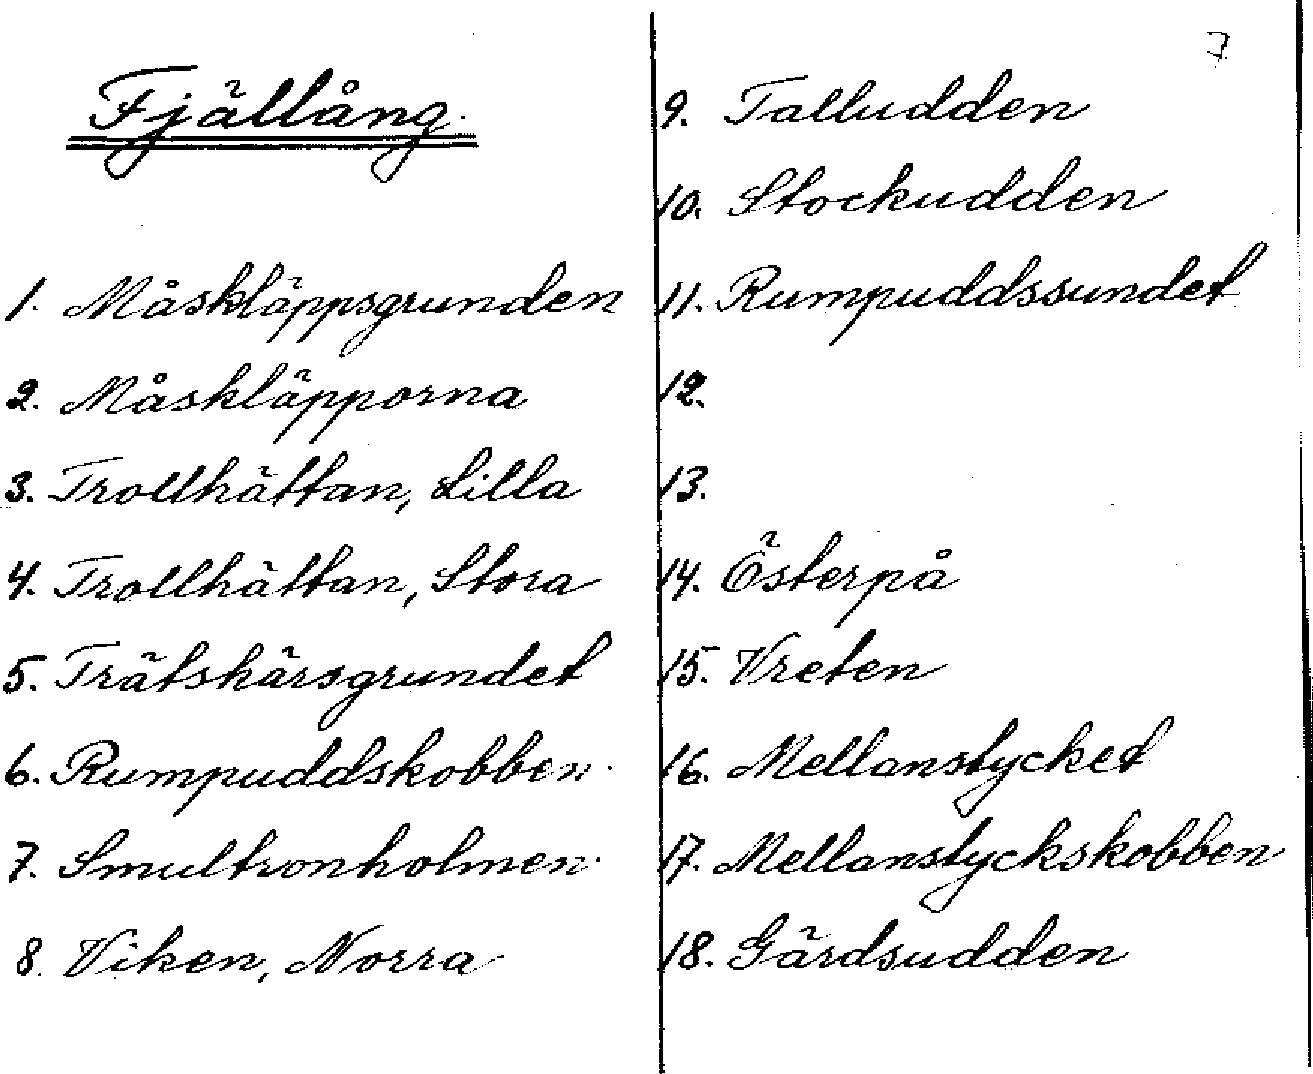 Fjällång.
1. Måskläppsgrunden
2. Måskläpporna
3. Trollhättan, Lilla
4. Trollhättan, Stora
5. Trätskärsgrundet
6. Rumpuddskobben
7. Smultronholmen
8. Viken, Norra
7
9. Talludden
10. Stockudden
11. Rumpuddssundet
12.
13.
14. Österpå
15. Vreten
16. Mellanstycket
17. Mellanstyckskobben
18. Gärdsudden